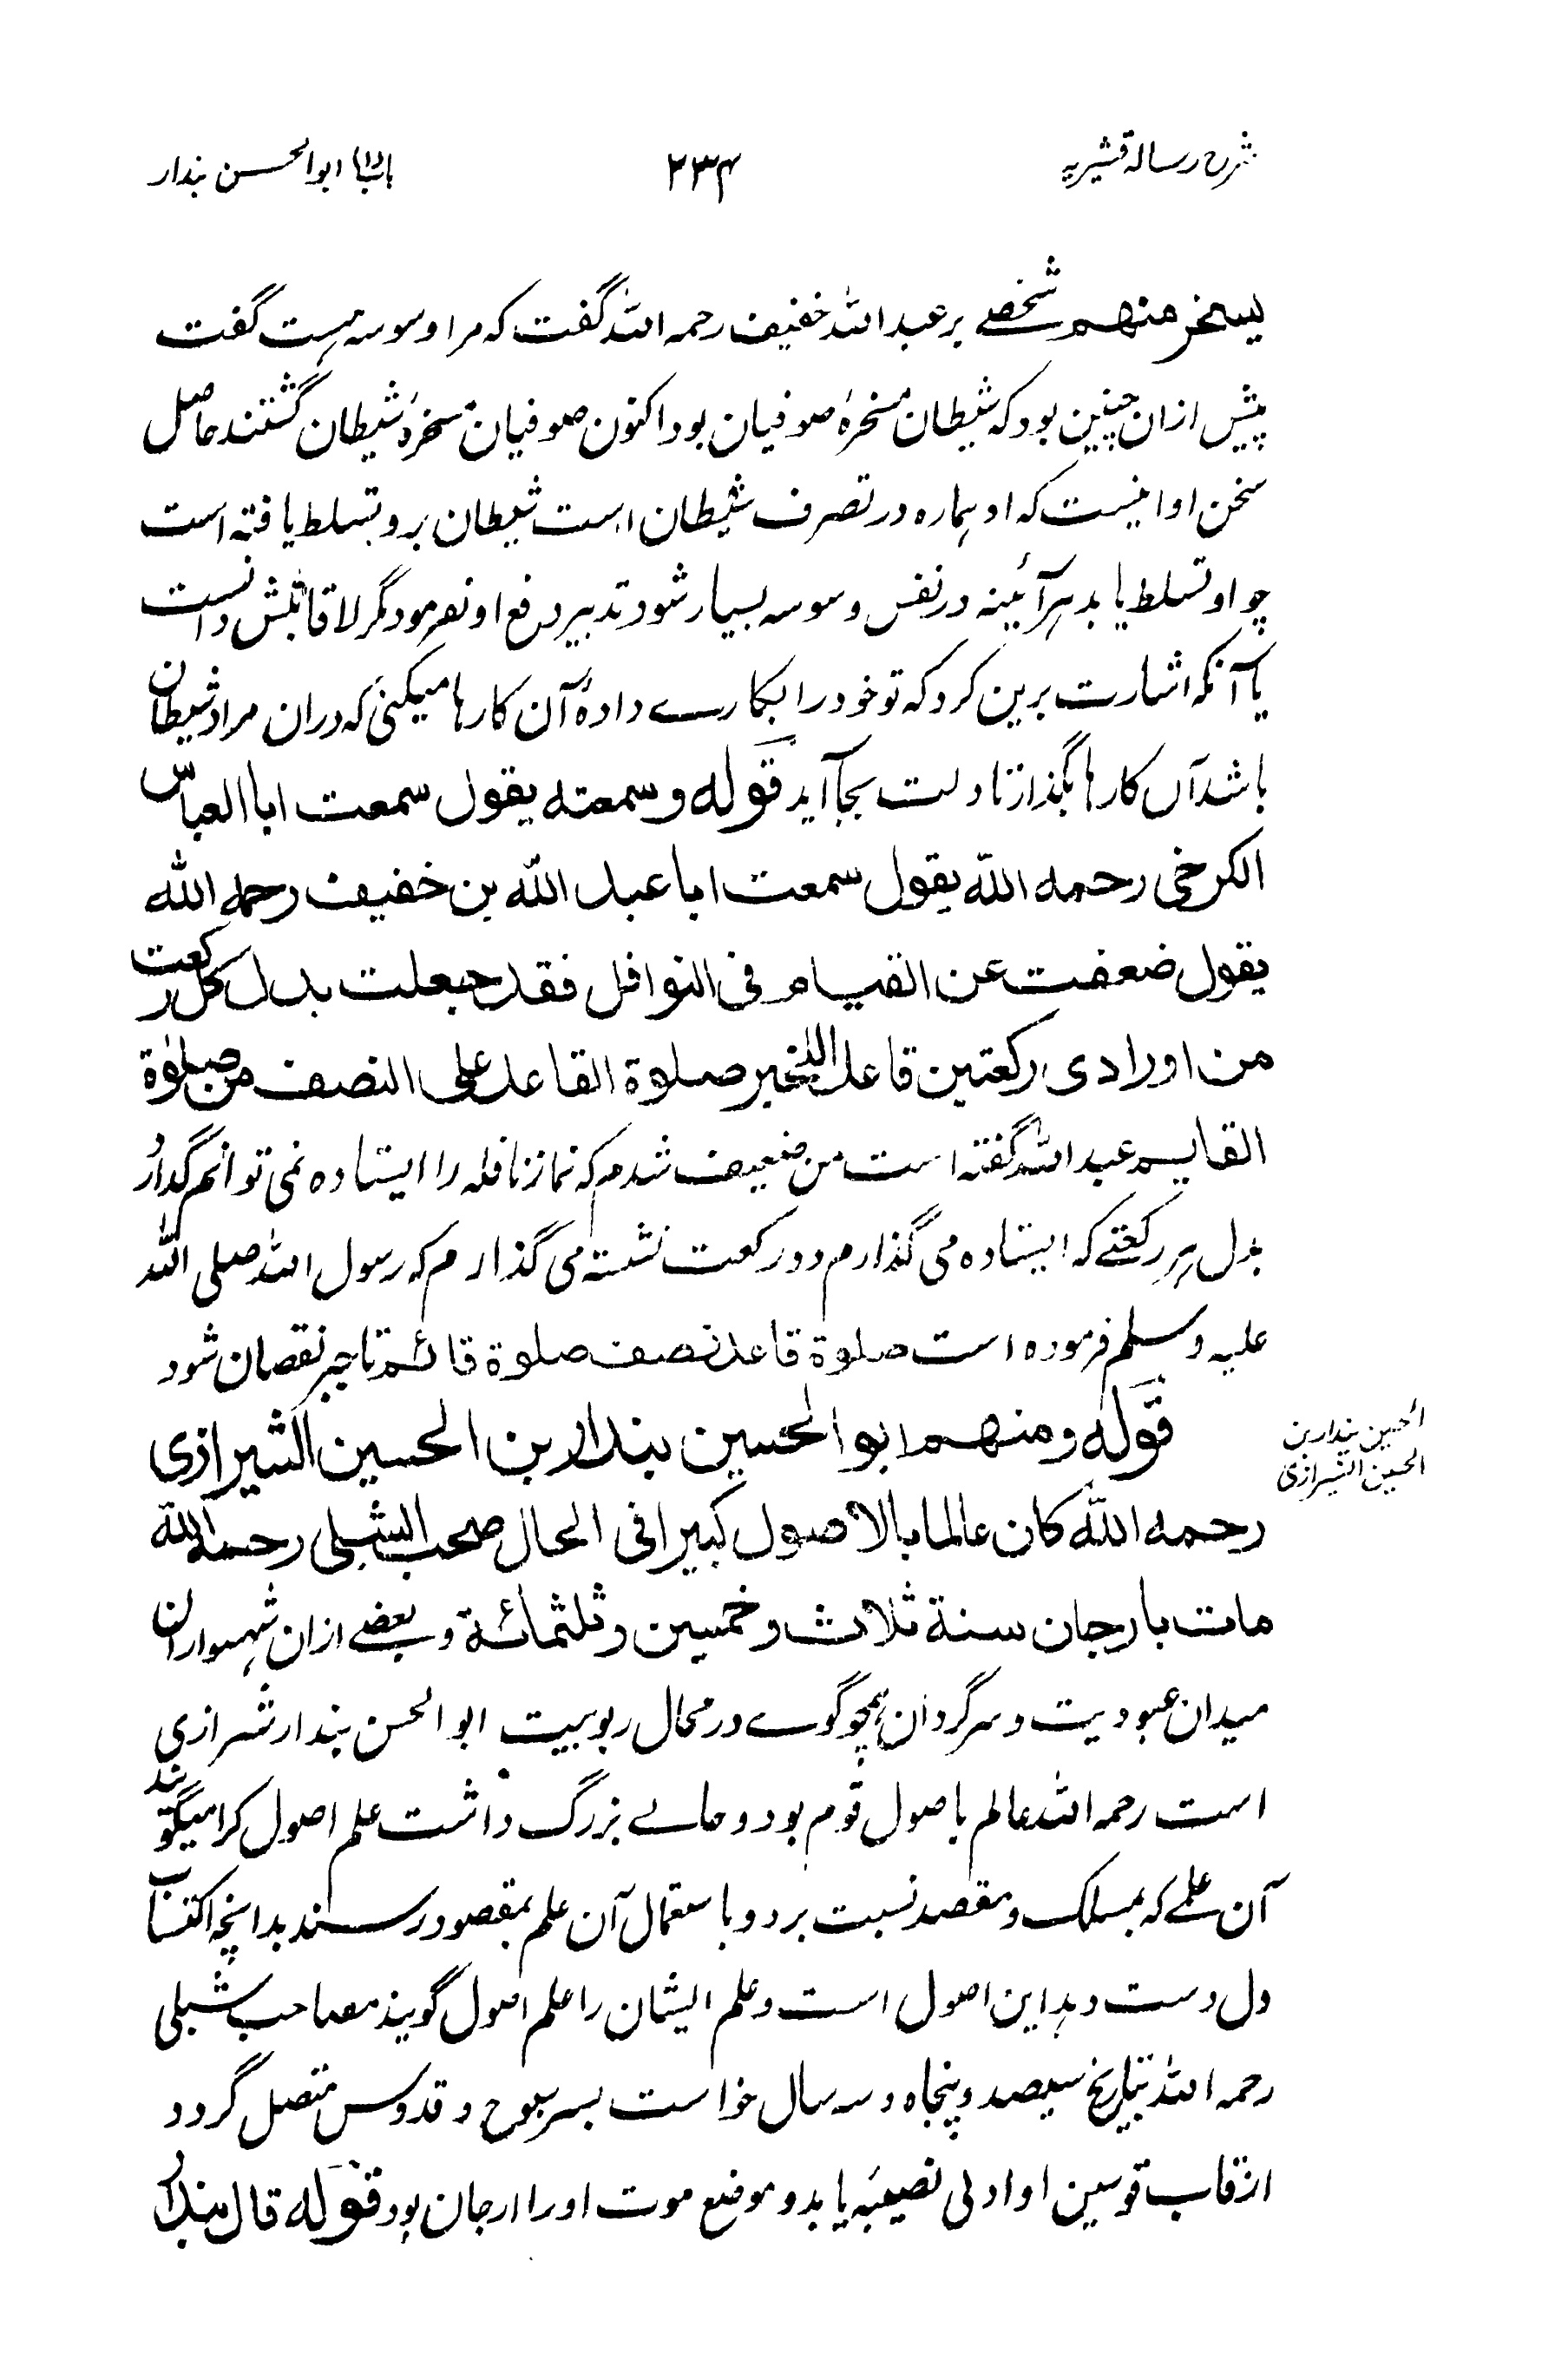 شرح رسالہ قشیریہ
۲۳۴
باب(۱) ابوالحسن بندار
یسخر منهم شخصے بر عبداللہ خفیف رحمہ اللہ گفت کہ مرا وسوسہ ہست گفت
پیش ازان چنین بود کہ شیطان مسخرۂ صوفیان بود اکنون صوفیان مسخرۂ شیطان گشتند حاصل
سخن او اینست کہ او ہمارہ در تصرف شیطان است شیطان برو تسلط یافتہ است
چو او تسلط یابد ہر آئینہ در نفس وسوسہ بسیار شود تدبیر دفع او نفرمود مگر لا قابلش دانست
یا آنکہ اشارت برین کرد کہ تو خود را بکارے دادۂ آن کارہا میکنی کہ دران مراد شیطان
باشد آں کارہا بگذار تا دلت بجا آید قوله وسمعته یقول سمعت ابا العباس
الکرخی رحمه الله یقول سمعت ابا عبد الله بن خفیف رحمه الله
یقول ضعفت عن القیام فی النوافل فقد جعلت بدل کل رکعت
من اورادی رکعتین قاعدا للخبر صلوة القاعد علی النصف من صلوة
القایم عبداللہ گفتہ است من ضعیف شدم کہ نماز نافلہ را ایستادہ نمی توانم گذارد
بدل ہر رکعتے کہ ایستادہ می گذارم دو رکعت نشستہ می گذارم کہ رسول اللہ صلی اللہ
علیہ وسلم فرمودہ است صلوة قاعد نصف صلوة قائم تا جبر نقصان شود
قوله ومنهم ابو الحسین بندار بن الحسین الشیرازی
الحسین بندار بن
الحسین الشیرازی
رحمه الله کان عالما بالاصول کبیرا فی الحال صحب الشبلی رحمه الله
مات بارجان سنة ثلاث وخمسین وثلثمائة و بعضے ازان شہسواران
میدان عبودیت و سرگردان ہمچو گوے در محال ربوبیت ابو الحسن بندار شیرازی
است رحمہ اللہ عالم باصول قوم بود و حالے بزرگ داشت علم اصول کرا میگویند
آن علمے کہ بمسلک و مقصد نسبت برد و باستعمال آن علم بمقصود رسند بدانچہ اکتساب
دل دست دہد این اصول است و علم ایشان را علم اصول گویند مصاحب شبلی
رحمہ اللہ بتاریخ سیصد و پنجاہ و سہ سال خواست بسر سبوح و قدوس متصل گردد
از قاب قوسین او ادنی نصیبہ یابد و موضع موت او را ارجان بود قوله قال بندار